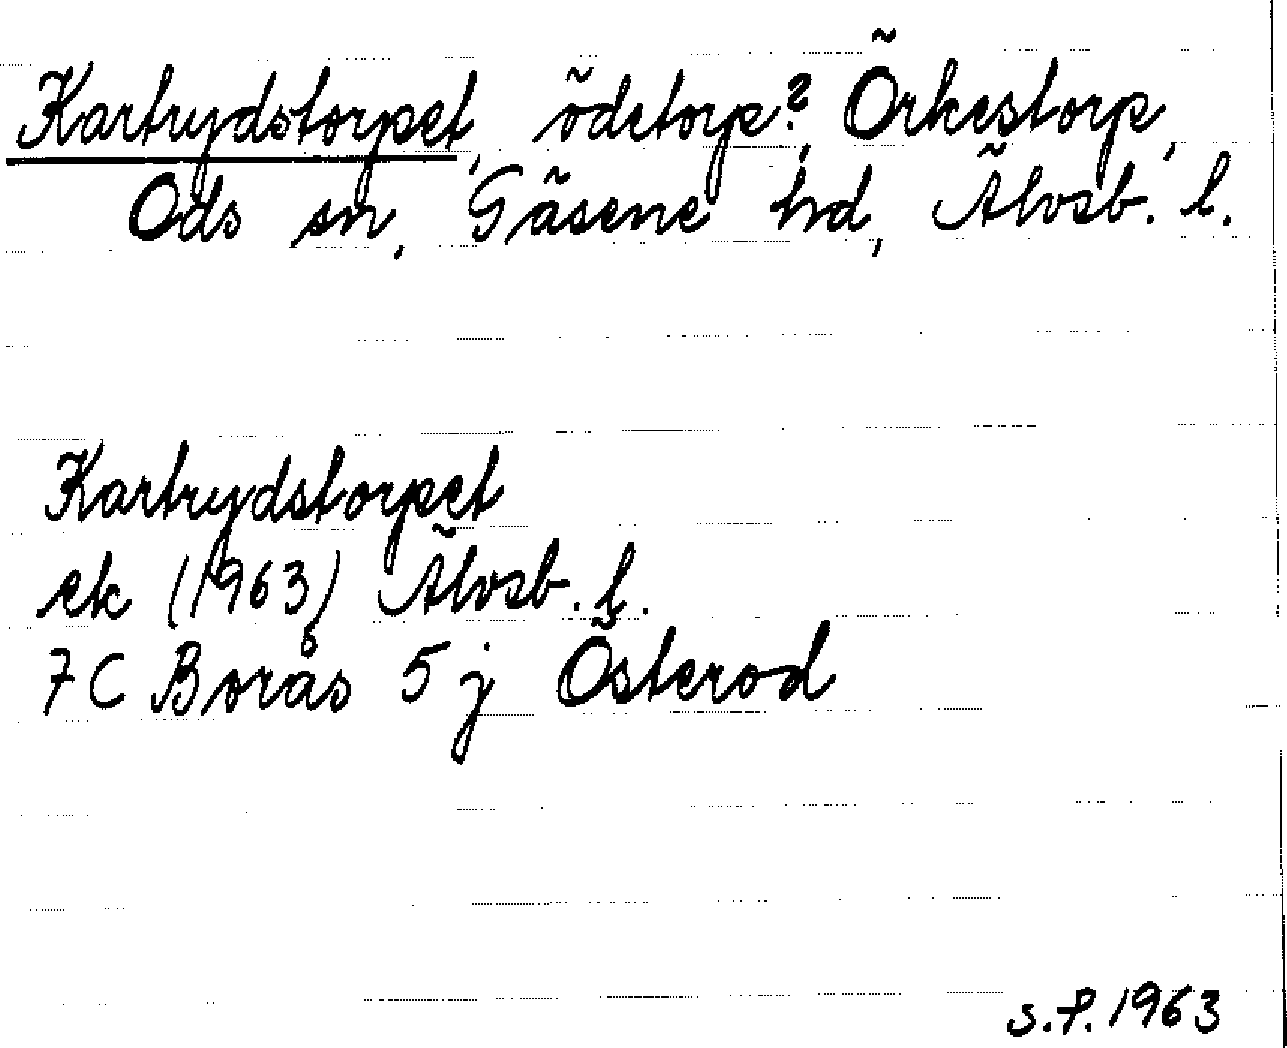 Kartrydstorpet, ödetorp?, Örkestorp,
Ods sn, Gäsene hd, Älvsb. l.
Kartrydstorpet
ek (1963) Älvsb. l.
7C Borås 5j Österod
s.P. 1963